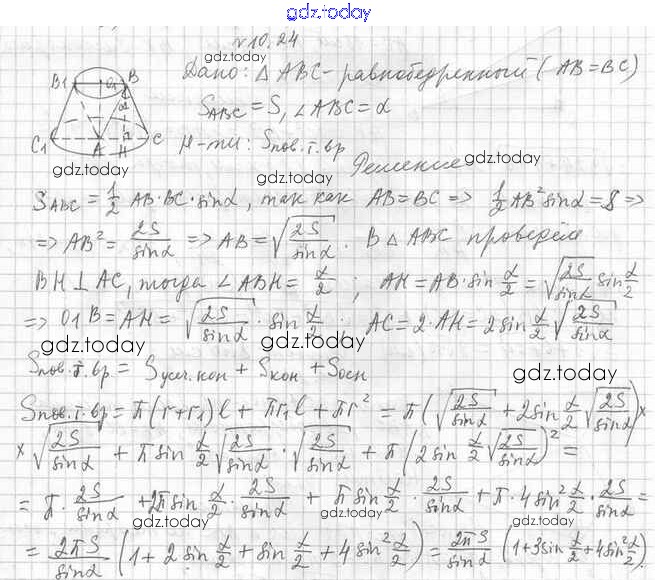 gdz.today
№ 10.24
gdz.today
Дано: △ ABC - равнобедренный (AB = BC)
S_ABC = S, ∠ABC = α
Н-ти: Sпов.т.вр
B1 O1 B
α
C1 A H C
gdz.today
gdz.today
Решение
S_ABC = 1/2 AB·BC·sinα, так как AB=BC => 1/2 AB² sinα = S =>
=> AB² = 2S/sinα => AB = √(2S/sinα). В △ ABC проведём
BH ⊥ AC, тогда ∠ABH = α/2; AH = AB·sin α/2 = √(2S/sinα) sin α/2
=> O1B = AH = √(2S/sinα) · sin α/2; AC = 2·AH = 2sin α/2 √(2S/sinα)
gdz.today
gdz.today
Sпов.т.вр = Sусеч.кон + Sкон + Sосн
gdz.today
Sпов.т.вр = π(r+r1)l + πr1l + πr² = π(√(2S/sinα) + 2sin α/2 √(2S/sinα))×
× √(2S/sinα) + π sin α/2 √(2S/sinα) · √(2S/sinα) + π(2sin α/2 √(2S/sinα))² =
= π · 2S/sinα + 2π sin α/2 · 2S/sinα + π sin α/2 · 2S/sinα + π·4sin² α/2 · 2S/sinα =
gdz.today
gdz.today
gdz.today
= 2πS/sinα (1 + 2sin α/2 + sin α/2 + 4sin² α/2) = 2πS/sinα (1+3sin α/2 + 4sin² α/2).
gdz.today